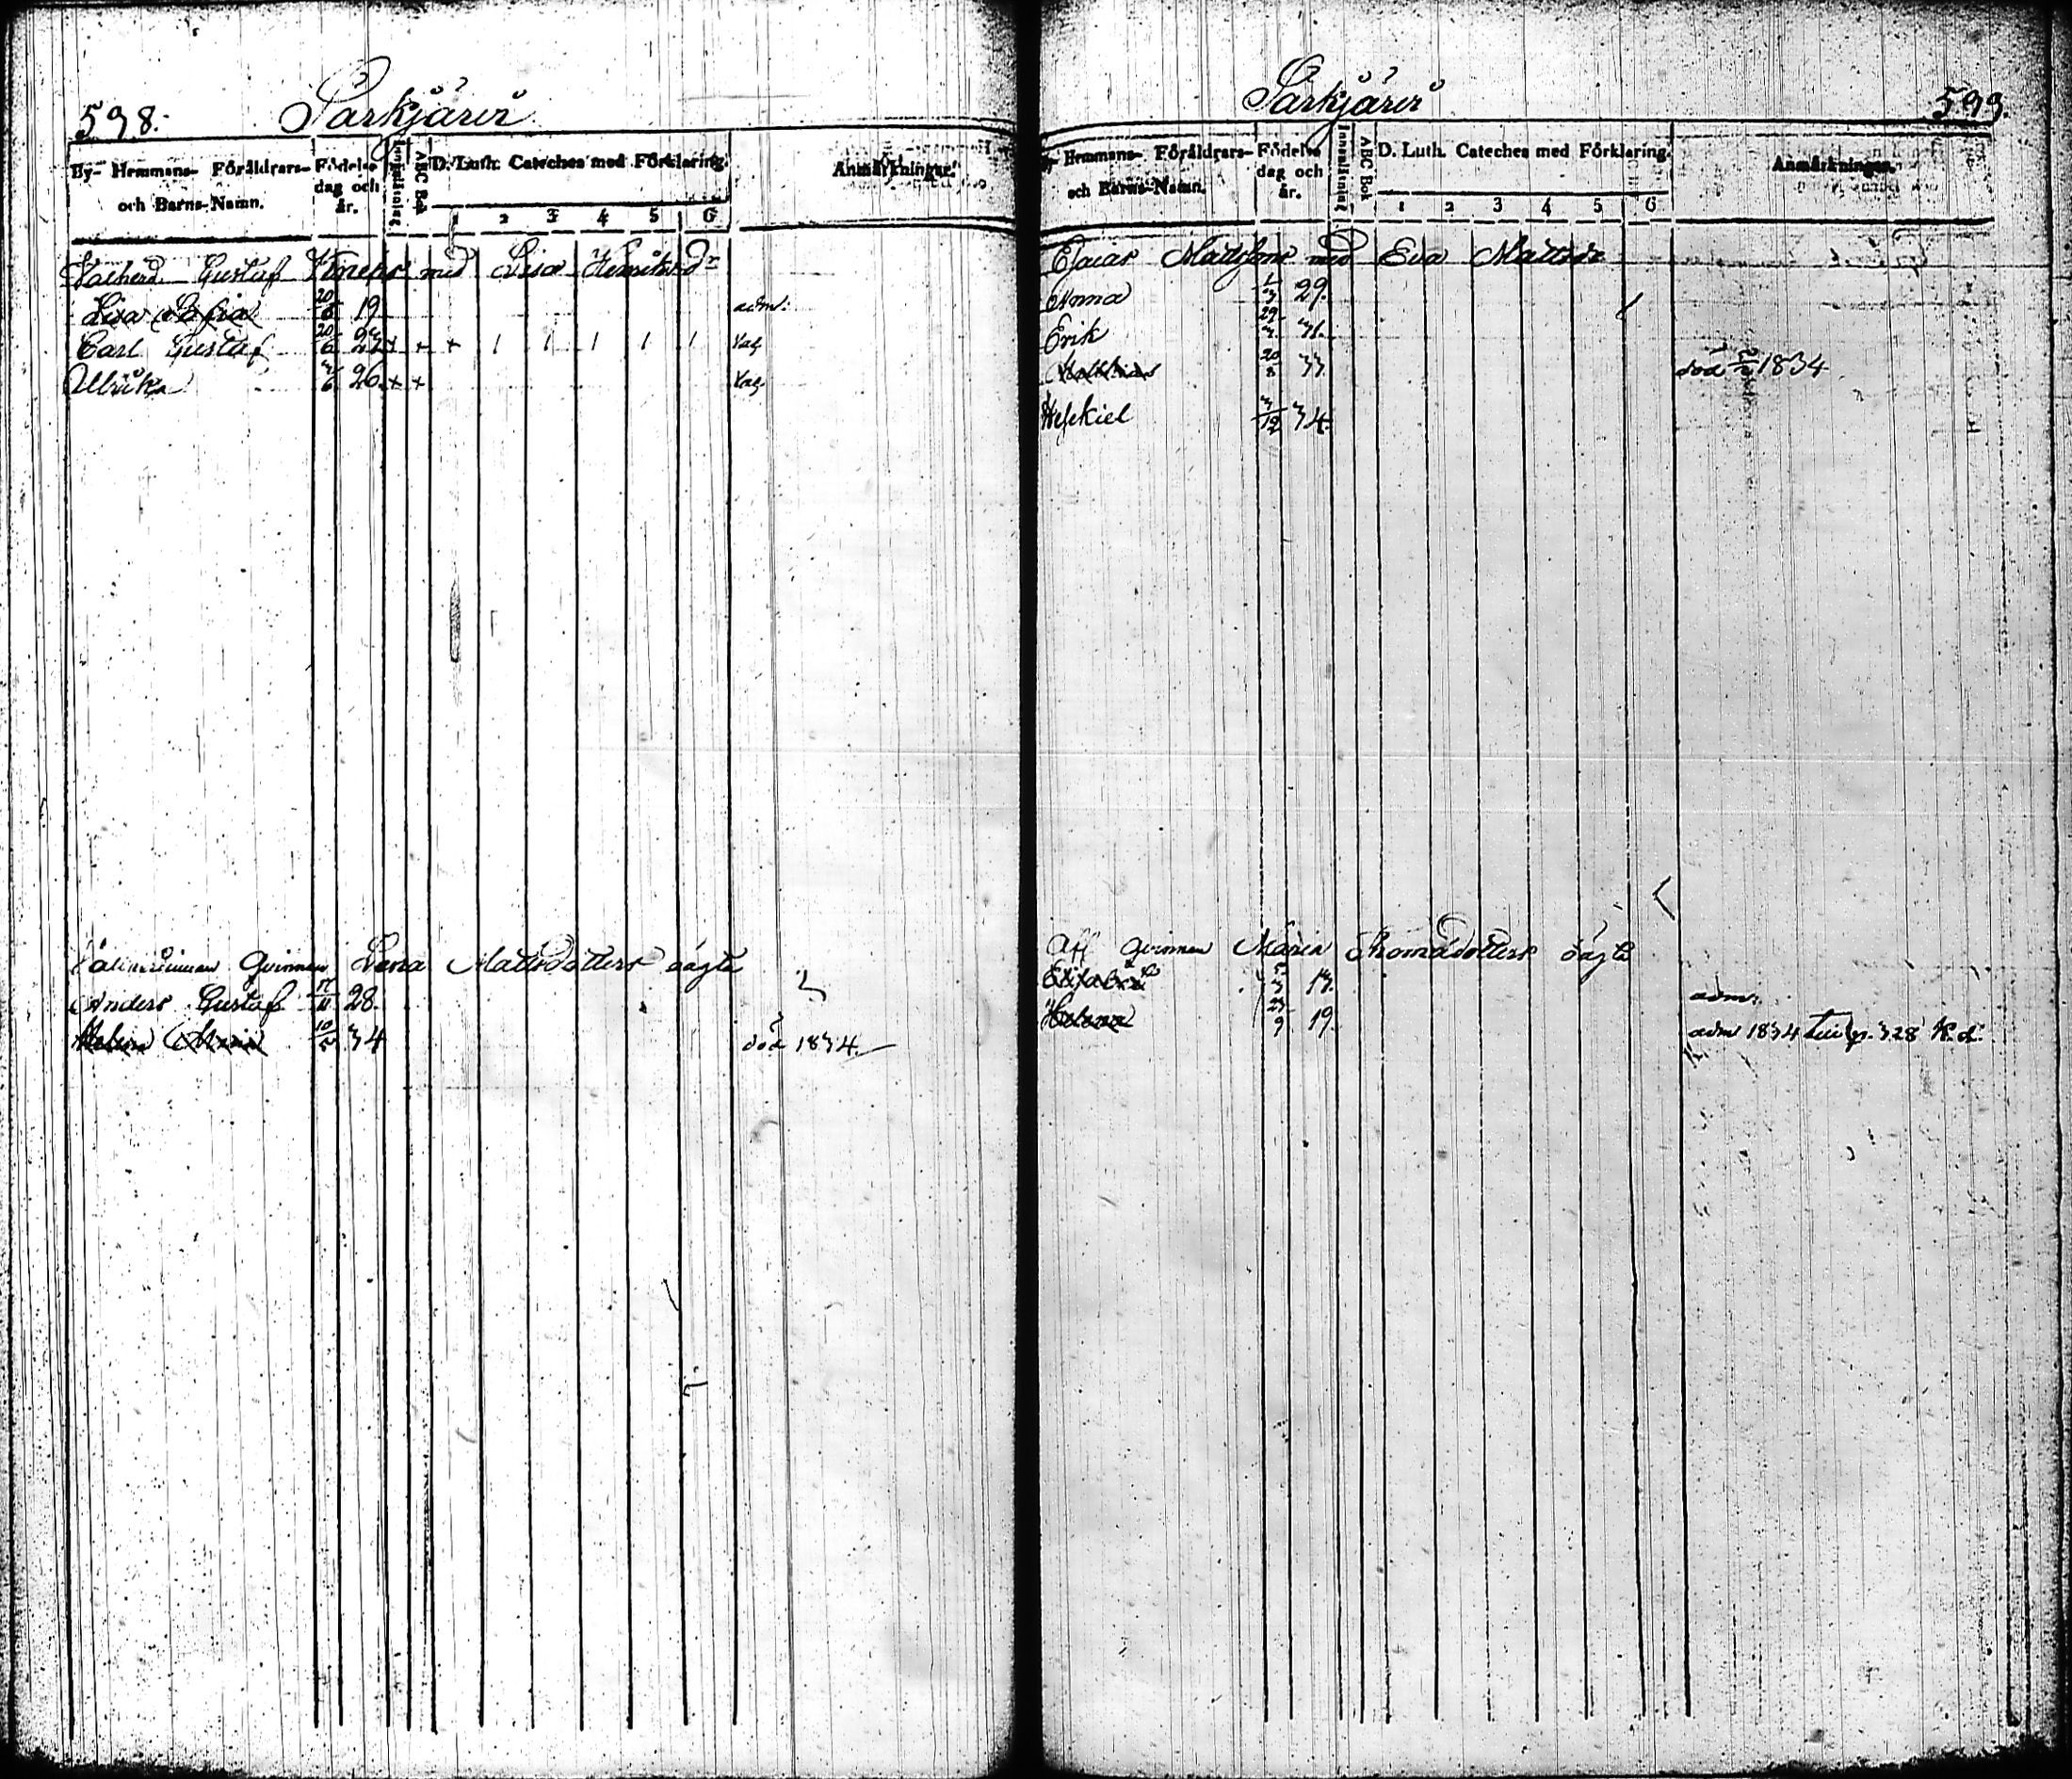 598. Särkjärvi
By- Hemmans- Föräldrars- och Barns-Namn. Födelse dag och år. Innanläsning ABC Bok D. Luth. Cateches med Förklaring. Anmärkningar.
1 2 3 4 5 6
Gustaf med Lisa Henriksdr
Lisa Sofia 20/8 19 adm.
Carl Gustaf 20/6 23 + + + 1 1 1 1 1
Ulrika 3/6 26 + +
Qvinnan Lena Mattsdotters oägta
Anders Gustaf 28.
Helena Maria 10/5 34 död 1834.
Särkjärvi 599.
By- Hemmans- Föräldrars- och Barns-Namn. Födelse dag och år. Innanläsning ABC Bok D. Luth. Cateches med Förklaring. Anmärkningar.
1 2 3 4 5 6
Esaias Mattsson med Eva Mattsdr
Anna 1/3 29.
Erik 29/3 31.
Matthias 20/8 33 död 1834
Hesekiel 3/12 34.
Aff qvinnan Maria Thomasdotters oägta
5/3 17. adm.
Helena 23/9 19. adm 1834 p. 328